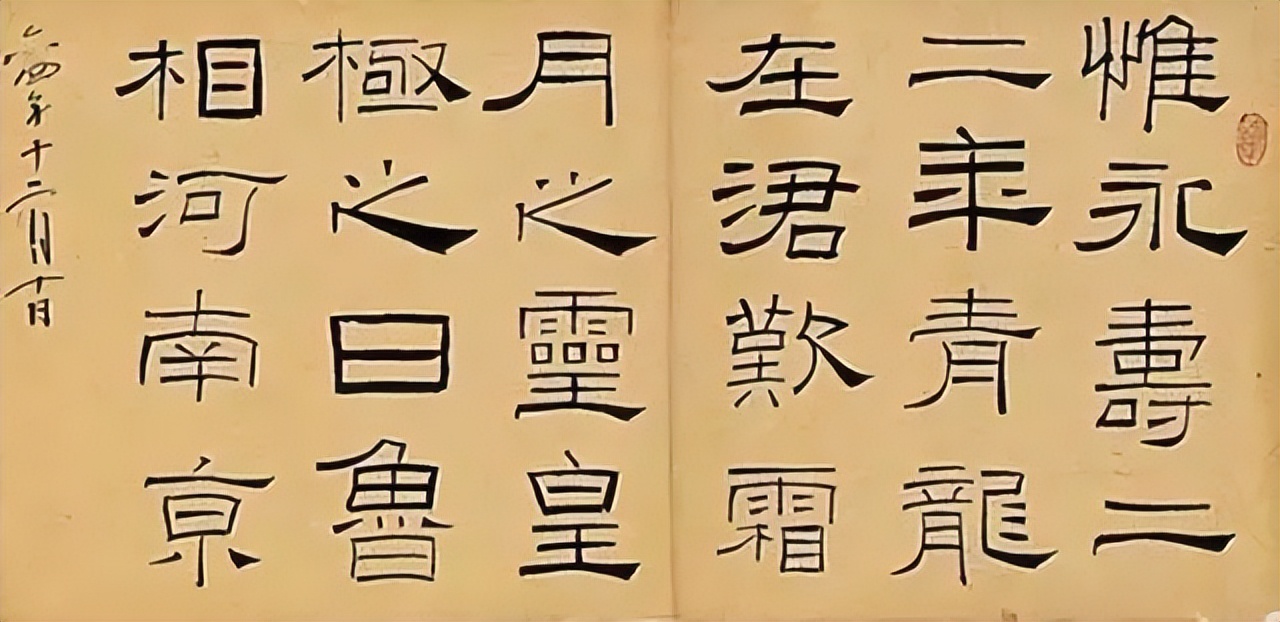 惟永壽二
二年青龍
在涒歎霜
月之靈皇
極之日魯
相河南京
年十二月